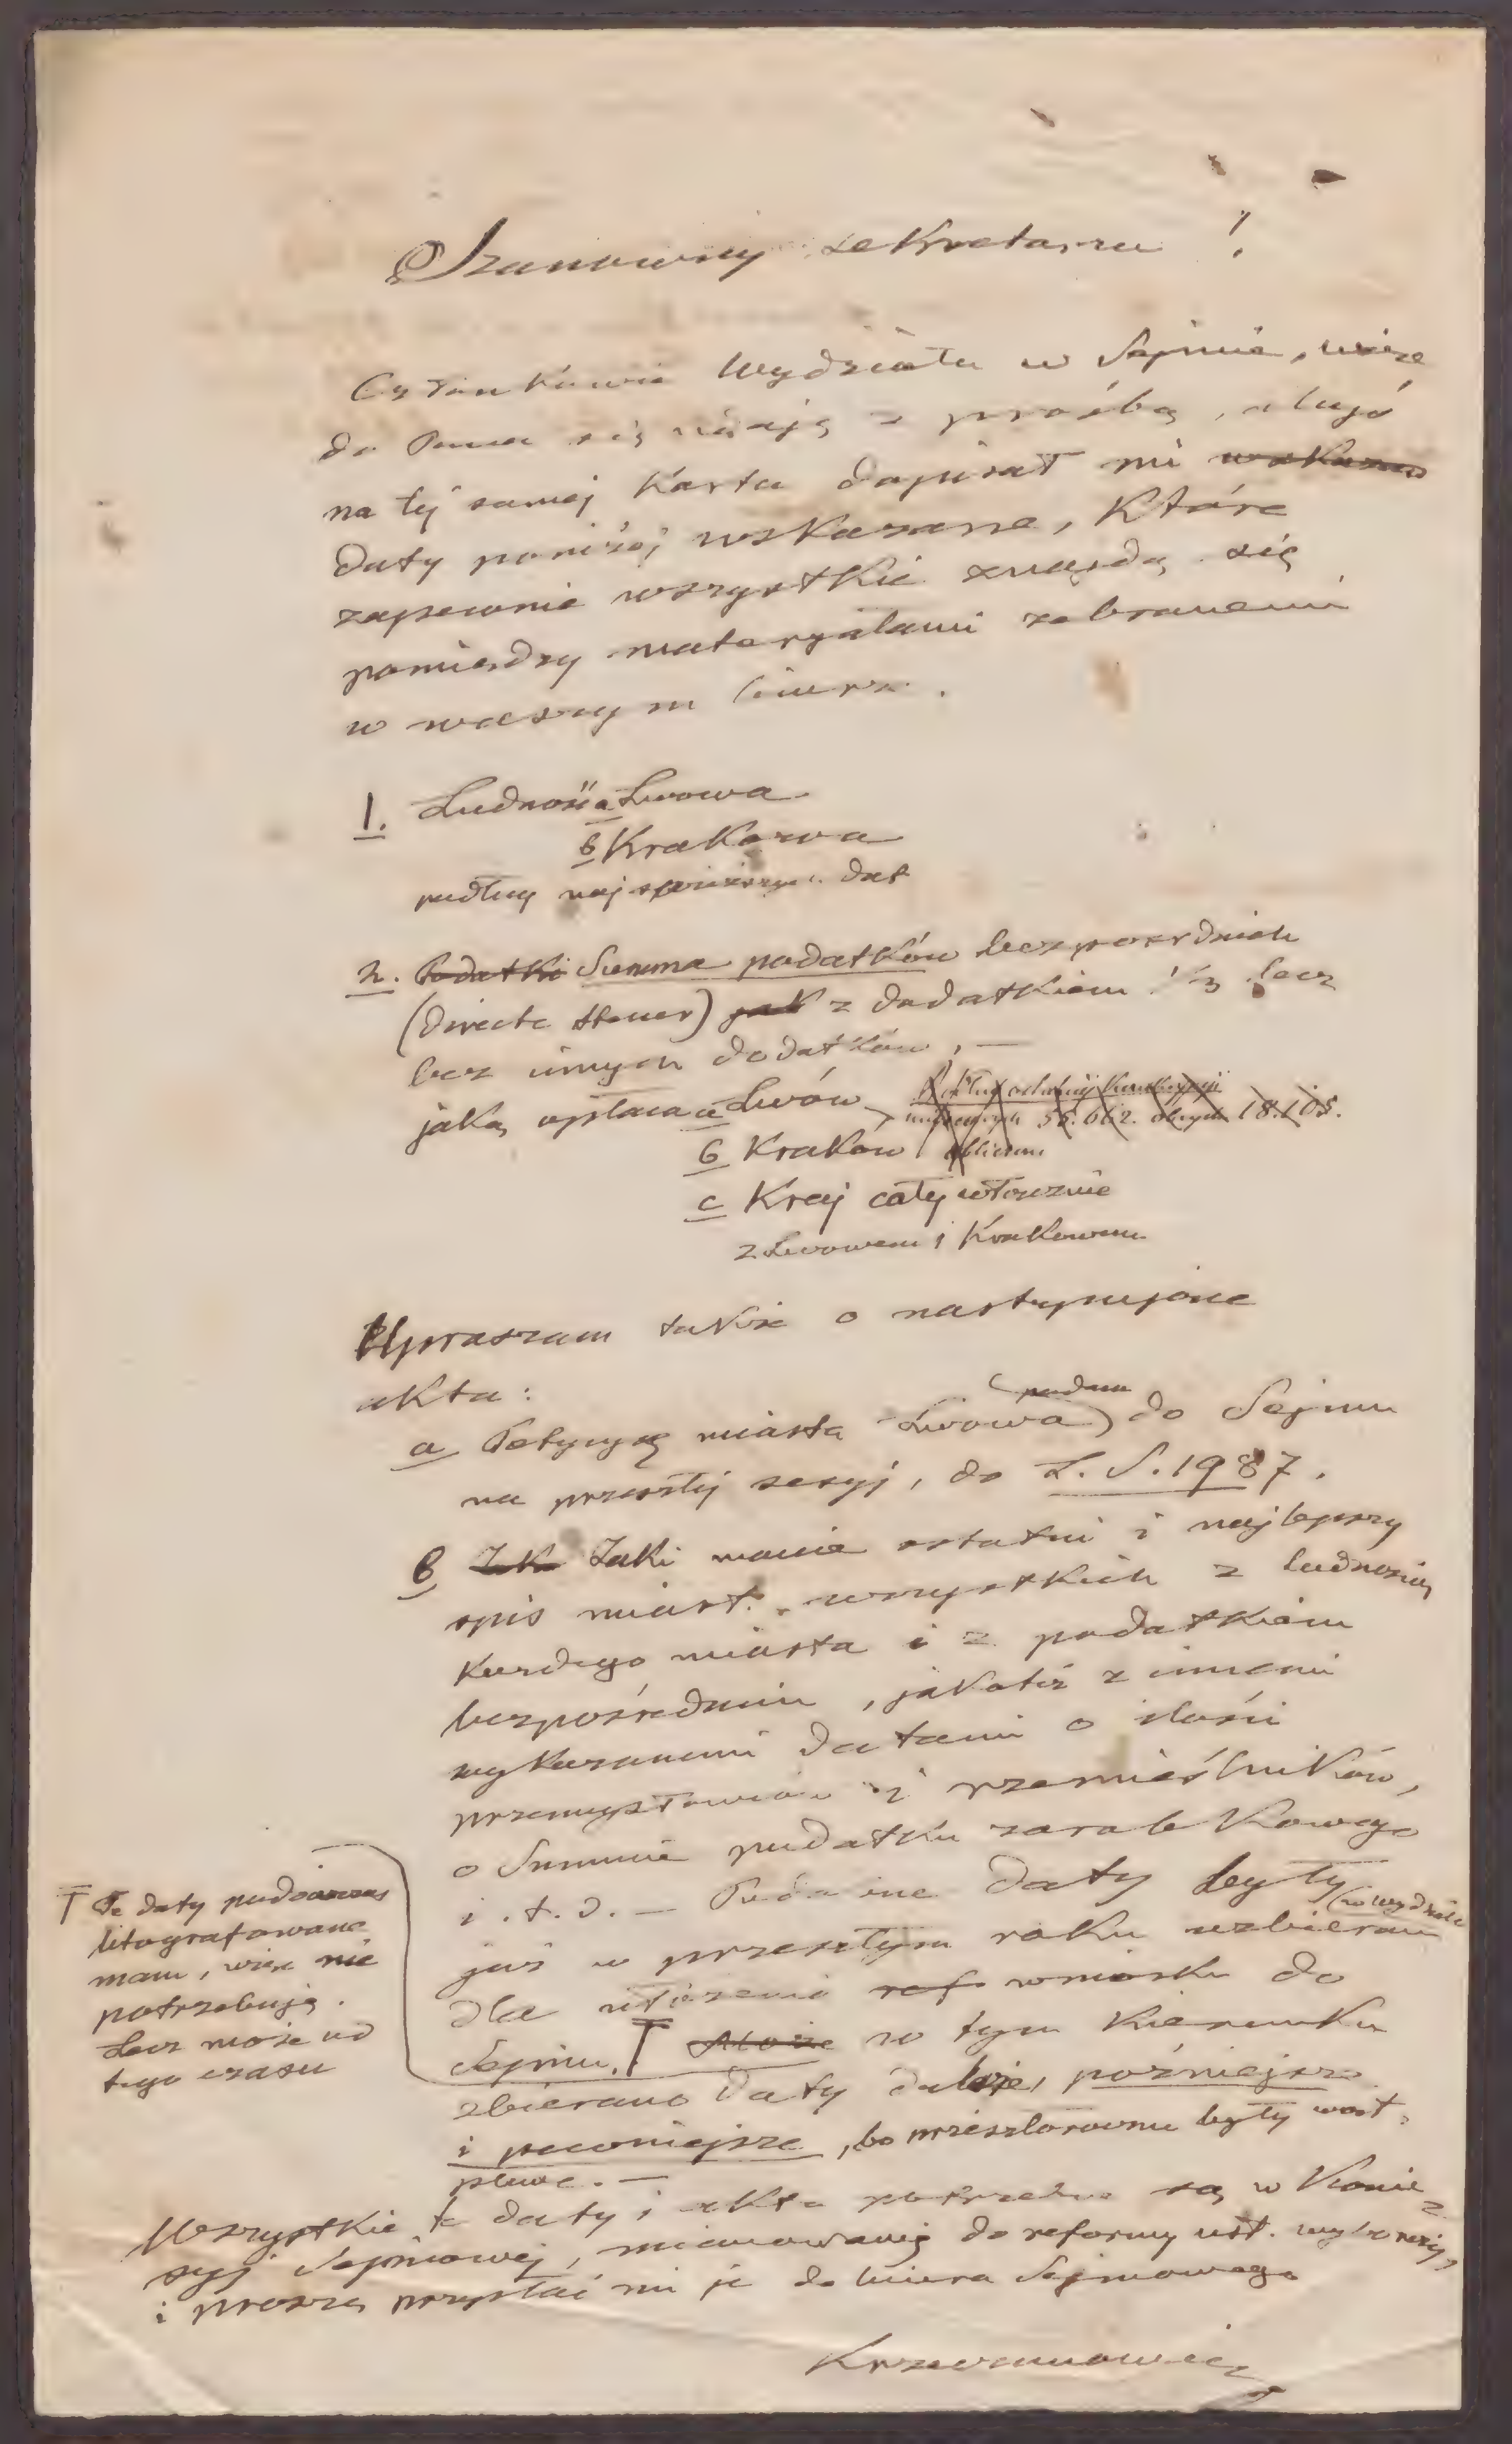 Szanowny sekretarzu!
Członkowie Wydziału w Sejmie, więc
do Pana się udaję z prośbą, abyś
na tej samej karta dopisał mi
daty poniżej wskazane, które
zapewnie wszystkie znajdą się
pomiędzy materyałami zebranemi
w waszym biurze.
1. Ludność a Lwowa
b Krakowa
podług najświeższych dat
2. Podatki Summa podatków bezpośrednich
(directe Steuer) jak z dodatkiem 1/3 lecz
bez innych dodatków, —
jaką opłaca a Lwów
56.662. 18.105.
b Kraków
c Kraj cały włącznie
z Lwowem i Krakowem
Upraszam także o następujące
akta:
a Petycyę miasta Lwowa (podana) do Sejmu
na przeszłej sesyj, do L. S. 1987.
b Jaki macie ostatni i najlepszy
spis miast wszystkich z ludnością
każdego miasta i z podatkiem
bezpośrednim, jakoteż z innemi
wykazanemi datami o ilości
przemysłowców i rzemieślników,
o Summie podatku zarobkowego
i.t.d. — Podobne daty były
(w wydziale
już w przeszłym roku uzbierane
dla ułożenia wniosku do
Sejmu. Może w tym kierunku
zbierano daty dalsze, późniejsze
i pewniejsze, bo przeszłoroczne były wąt-
pliwe. —
T Te daty podówczas
litografowane
mam, więc nie
potrzebuję.
Lecz może od
tego czasu
Wszystkie te daty i akta potrzebne są w Komis-
syj Sejmowej, mianowanej do reformy ust. wyborczej,
i proszę przysłać mi je do biura Sejmowego
Krzeczunowicz